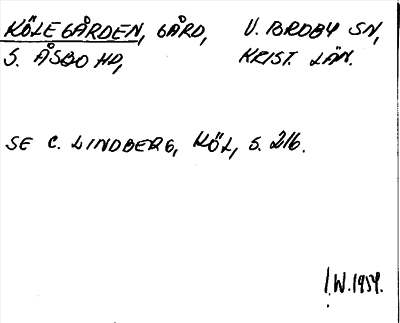 KÖLEGÅRDEN, GÅRD, V. BROBY SN,
S. ÅSBO HD, KRIST. LÄN.
SE C. LINDBERG, KÖL, S. 216.
I.W.1954.